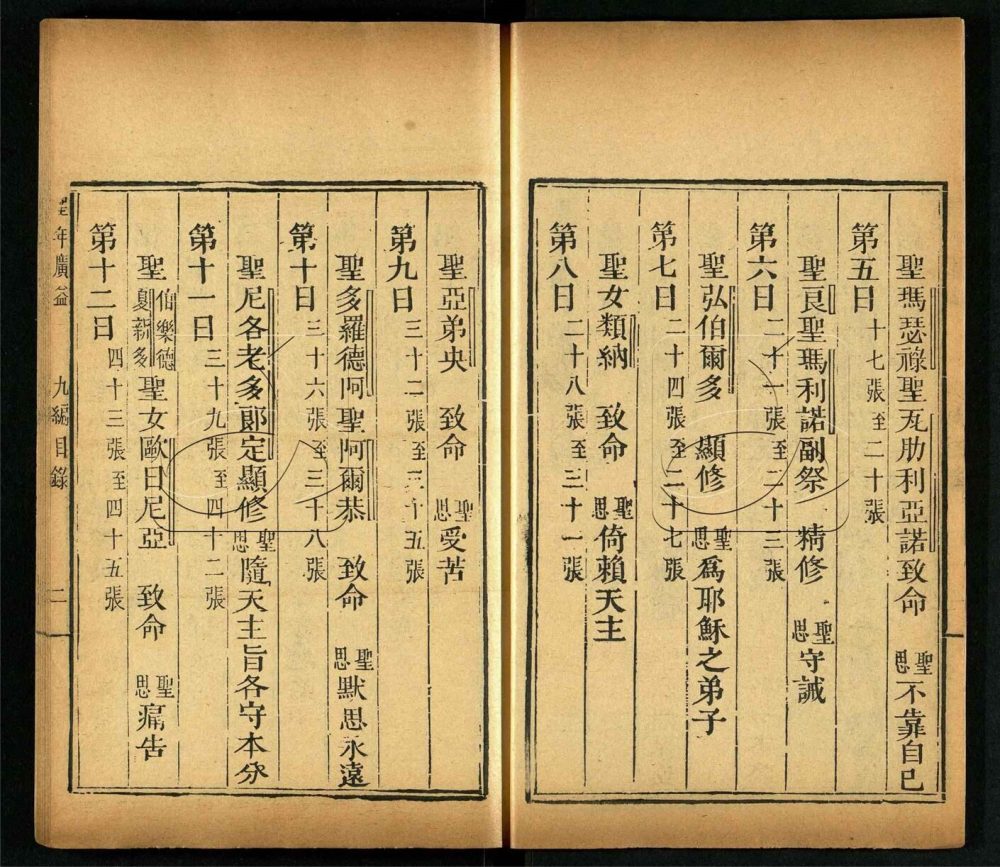 聖瑪瑟祿聖瓦肋利亞諾致命 聖思不靠自己
第五日 十七張至二十張
聖良聖瑪利諾副祭 精修 聖思守誡
第六日 二十一張至二十三張
聖弘伯爾多 顯修 聖思為耶穌之弟子
第七日 二十四張至二十七張
聖女類納 致命 聖思倚賴天主
第八日 二十八張至三十一張
聖亞弟央 致命 聖思受苦
第九日 三十二張至三十五張
聖多羅德阿聖阿爾恭 致命 聖思默思永遠
第十日 三十六張至三十八張
聖尼各老多郎定顯修 聖思隨天主旨各守本分
第十一日 三十九張至四十二張
聖伯樂德夏新多聖女歐日尼亞 致命 聖思痛告
第十二日 四十三張至四十五張
聖年廣益 九編目錄 二